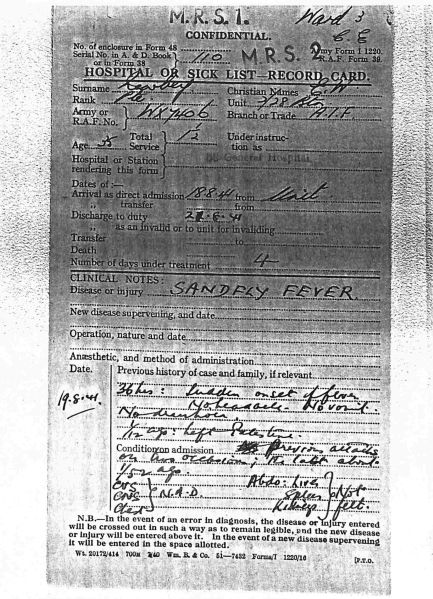 M.R.S.1. Ward 3
C.E
CONFIDENTIAL.
No. of enclosure in Form 48
Serial No. in A. & D. Book 110 M R S 2 Army Form I 1220.
or in Form 38 R.A.F. Form 39.
HOSPITAL OR SICK LIST—RECORD CARD.
Surname Christian Names
Rank Pte Unit 2/28 Bn
Army or Branch or Trade A.I.F
R.A.F. No.
Age 35 Total Service 12 Under instruction as
Hospital or Station General Hospital
rendering this form
Dates of:—
Arrival as direct admission 18.8.41 from Unit
„ transfer from
Discharge to duty 21.8.41
„ as an invalid or to unit for invaliding
Transfer to
Death
Number of days under treatment 4
CLINICAL NOTES:
Disease or injury SANDFLY FEVER.
New disease supervening, and date
Operation, nature and date
Anæsthetic, and method of administration
Date. Previous history of case and family, if relevant
19.8.41. 36 hrs: sudden onset of fever
No headache. No vomit.
No diarrhoea.
1/12 ago: left Palestine.
Condition on admission Previous attacks
on two occasions, the latter about
1/52 ago.
CVS Abdo: Liver
CNS N.A.D. Spleen Not
Chest Kidneys felt.
N.B.—In the event of an error in diagnosis, the disease or injury entered
will be crossed out in such a way as to remain legible, and the new disease
or injury will be entered above it. In the event of a new disease supervening
it will be entered in the space allotted.
Wt. 20172/414 700M 2/40 Wm. B. & Co. 51—7432 Forms/I 1220/16 [P.T.O.